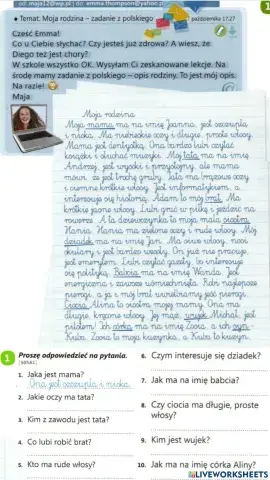 od: maja12@wp.pl | do: emma.thompson@yahoo.p
• Temat: Moja rodzina – zadanie z polskiego
października 17:27
Cześć Emma!
Co u Ciebie słychać? Czy jesteś już zdrowa? A wiesz, że
Diego też jest chory?
W szkole wszystko OK. Wysyłam Ci zeskanowane lekcje. Na
środę mamy zadanie z polskiego – opis rodziny. To jest mój opis.
Na razie!
Maja
Moja rodzina
Moja mama ma na imię Joanna, jest szczupła
i niska. Ma niebieskie oczy i długie, proste włosy.
Mama jest dentystką. Ona bardzo lubi czytać
książki i słuchać muzyki. Mój tata ma na imię
Andrzej, jest wysoki i przystojny, ale mama
mówi, że jest trochę gruby. Tata ma brązowe oczy
i ciemne krótkie włosy. Jest informatykiem, a
interesuje się historią. Adam to mój brat. Ma
krótkie jasne włosy. Lubi grać w piłkę i jeździć na
rowerze. A ta dziewczynka to moja mała siostra
Hania. Hania ma zielone oczy i rude włosy. Mój
dziadek ma na imię Jan. Ma siwe włosy, nosi
okulary i jest bardzo wesoły. On już nie pracuje,
jest emerytem. Lubi czytać gazety, bo interesuje
się polityką. Babcia ma na imię Wanda. Jest
energiczna i zawsze uśmiechnięta. Robi najlepsze
pierogi, a ja i mój brat uwielbiamy jeść pierogi.
Ciocia Alina to siostra mojej mamy. Ona ma
długie, kręcone włosy. Jej mąż, wujek Michał, jest
pilotem. Ich córka ma na imię Zosia, a ich syn
Kuba. Zosia to moja kuzynka, a Kuba to kuzyn.
1 Proszę odpowiedzieć na pytania.
1. Jaka jest mama?
Ona jest szczupła i niska.
2. Jakie oczy ma tata?
3. Kim z zawodu jest tata?
4. Co lubi robić brat?
5. Kto ma rude włosy?
6. Czym interesuje się dziadek?
7. Jak ma na imię babcia?
8. Czy ciocia ma długie, proste
włosy?
9. Kim jest wujek?
10. Jak ma na imię córka Aliny?
LIVEWORKSHEETS